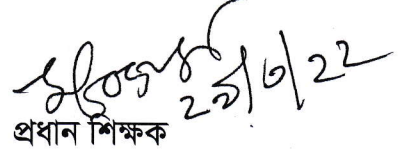 ২৯/৩/২২
প্রধান শিক্ষক